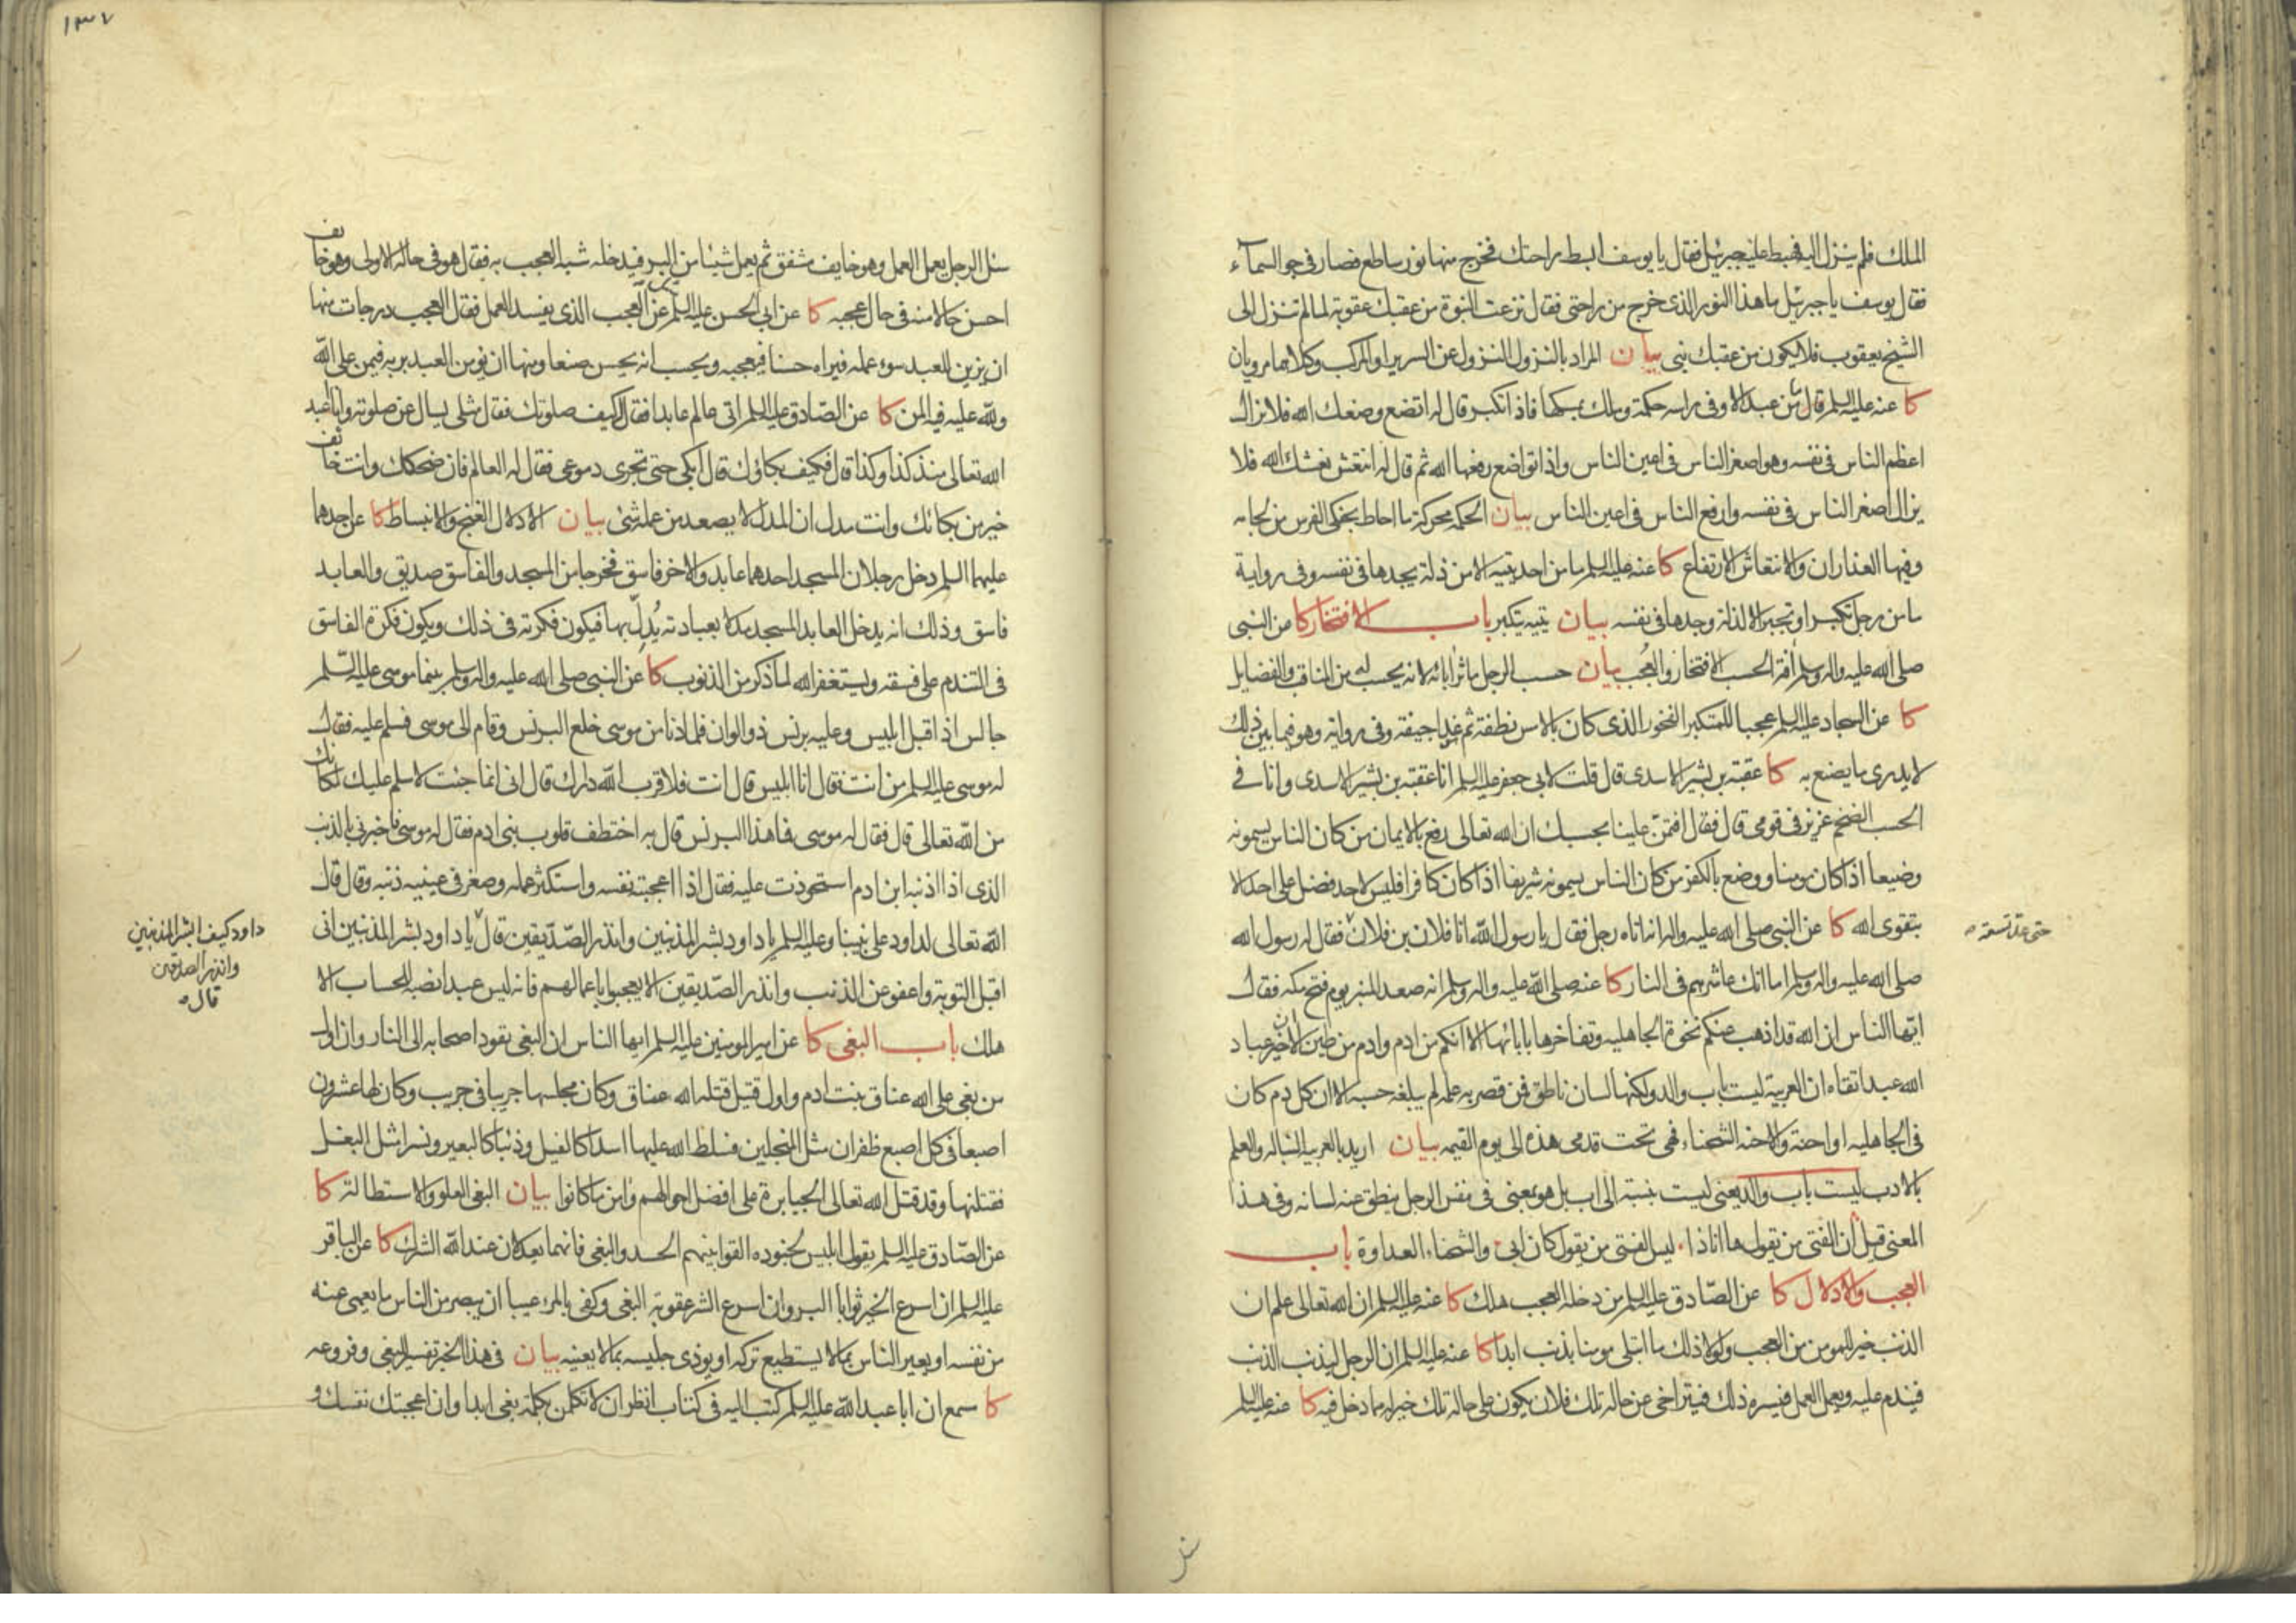 الملك فلم ينزل اليه فهبط عليه جبرئيل فقال يا يوسف ابسط راحتك فخرج منها نور ساطع فصار في جو السماء
فقال يوسف يا جبرئيل ما هذا النور الذى خرج من راحتى فقال نزعت النبوة من عقبك عقوبة لما لم تنزل الى
الشيخ يعقوب فلا يكون من عقبك نبى بيان المراد بالنزول النزول عن السرير او المركب وكلاهما مرويان
كا عنه عليه السلم قال ما من عبد الا وفى راسه حكمة وملك يمسكها فاذا تكبر قال له اتضع وضعك الله فلا يزال
اعظم الناس فى نفسه وهو اصغر الناس فى اعين الناس واذا تواضع رفعها الله ثم قال له انتعش نعشك الله فلا
يزال اصغر الناس فى نفسه وارفع الناس فى اعين الناس بيان الحكمة محركة ما احاط بحنكى الفرس من لجامه
وفيها العذاران والانتعاش الارتفاع كا عنه عليه السلم ما من احد يتيه الا من ذلة يجدها فى نفسه وفى رواية
ما من رجل تكبر او تجبر الا لذلة وجدها فى نفسه بيان يتيه يتكبر باب الافتخار كا من النبى
صلى الله عليه واله وسلم افة الحسب الافتخار والعُجب بيان حسب الرجل ماثر ابائه لانه يحسب لهم من المناقب والفضايل
كا عن السجاد عليه السلم عجبا للمتكبر الفخور الذى كان بالامس نطفة ثم غدا جيفة وفى رواية وهو فيما بين ذلك
لا يدرى ما يصنع به كا عقبة بن بشير الاسدى قال قلت لابى جعفر عليه السلم انا عقبة بن بشير الاسدى وانا فى
الحسب الضخم عزيز فى قومى قال فقال افتمنّ علينا بحسبك ان الله تعالى رفع بالايمان من كان الناس يسمونه
وضيعا اذا كان مومنا ووضع بالكفر من كان الناس يسمونه شريفا اذا كان كافرا فليس لاحد فضل على احد الا
بتقوى الله كا عن النبى صلى الله عليه واله انه اتاه رجل فقال يا رسول الله انا فلان بن فلان فقال له رسول الله
حتى عد تسعة
صلى الله عليه واله وسلم اما انك عاشرهم فى النار كا عنه صلى الله عليه واله وسلم انه صعد المنبر يوم فتح مكه فقال
ايها الناس ان الله قد اذهب عنكم نخوة الجاهليه وتفاخرها بابائها الا انكم من ادم وادم من طين الا ان خير عباد
الله عبد اتقاه ان العربية ليست باب والد ولكنها لسان ناطق فمن قصر به عمله لم يبلغه حسبه الا ان كل دم كان
فى الجاهليه او احنة والاحنة الشحناء فهى تحت قدمى هذه الى يوم القيمه بيان اريد بالعربية النباله والعلم
بالادب ليست باب والد يعنى ليست بنسبة الى اب بل هو معنى فى نفس الرجل ينطق عنه لسانه وفى هذا
المعنى قيل ان الفتى من يقول ها انا ذا ليس الفتى من يقول كان ابى والشحناء العداوة باب
العجب والادلال كا عن الصّادق عليه السلم من دخله العجب هلك كا عنه عليه السلم ان الله تعالى علم ان
الذنب خير للمومن من العجب ولولا ذلك ما ابتلى مومنا بذنب ابدا كا عنه عليه السلم ان الرجل ليذنب الذنب
فيندم عليه ويعمل العمل فيسره ذلك فيتراخى عن حاله تلك فلان يكون على حالة تلك خير له مما دخل فيه كا عنه عليه السلم
سئل
١٣٧
سئل الرجل يعمل العمل وهو خايف مشفق ثم يعمل شيئا من البر فيدخله شبه العجب به فقال هو فى حاله الاولى وهو خايف
احسن حالا منه فى حال عجبه كا عن ابى الحسن عليه السلم سئل عن العجب الذى يفسد العمل فقال العجب درجات منها
ان يزين للعبد سوء عمله فيراه حسنا فيعجبه ويحسب انه يحسن صنعا ومنها ان يومن العبد بربه فيمن على الله
ولله عليه فيه المن كا عن الصّادق عليه السلم اتى عالم عابدا فقال كيف صلوتك فقال مثلى يسال عن صلوته وانا اعبد
الله تعالى منذ كذا وكذا قال فكيف بكاؤك قال ابكى حتى تجرى دموعى فقال له العالم فان ضحكك وانت خائف
خير من بكائك وانت مدل ان المدل لا يصعد من عمله شئ بيان الادلال الغنج والانبساط كا عن احدهما
عليهما السلم دخل رجلان المسجد احدهما عابد والاخر فاسق فخرجا من المسجد والفاسق صديق والعابد
فاسق وذلك انه يدخل العابد المسجد مدلا بعبادته يُدِلّ بها فيكون فكرته فى ذلك ويكون فكرة الفاسق
فى التندم على فسقه ويستغفر الله لما ذكر من الذنوب كا عن النبى صلى الله عليه واله وسلم بينما موسى عليه السّلم
جالس اذا قبل ابليس وعليه برنس ذو الوان فلما دنا من موسى خلع البرنس وقام الى موسى فسلم عليه فقال
له موسى عليه السلم من انت فقال انا ابليس قال انت فلا قرب الله دارك قال انى انما جئت لاسلم عليك لمكانك
من الله تعالى قال فقال له موسى فما هذا البرنس قال به اختطف قلوب بنى ادم فقال له موسى فاخبرنى بالذنب
الذى اذا اذنبه ابن ادم استحوذت عليه فقال اذا اعجبته نفسه واستكثر عمله وصغر فى عينيه ذنبه وقال قال
الله تعالى لداود على نبينا وعليه السلم يا داود بشر المذنبين وانذر الصّدّيقين قال يا داود بشر المذنبين انى
داود كيف ابشر المذنبين
وانذر الصديقين
قال
اقبل التوبة واعفو عن الذنب وانذر الصّديقين الا يعجبوا باعمالهم فانه ليس عبد انصبه للحساب الا
هلك باب البغى كا عن امير المومنين عليه السلم ايها الناس ان البغى يقود اصحابه الى النار وان اول
من بغى على الله عناق بنت ادم واول قتيل قتله الله عناق وكان مجلسها جريبا فى جريب وكان لها عشرون
اصبعا فى كل اصبع ظفران مثل المنجلين فسلط الله عليها اسدا كالفيل وذئبا كالبعير ونسرا مثل البغل
فقتلنها وقد قتل الله تعالى الجبابرة على افضل احوالهم وامن ما كانوا بيان البغى العلو والاستطالة كا
عن الصّادق عليه السلم يقول ابليس لجنوده القوا بينهم الحسد والبغى فانهما يعدلان عند الله الشرك كا عن الباقر
عليه السلم ان اسرع الخير ثوابا البر وان اسرع الشر عقوبة البغى وكفى بالمرء عيبا ان يبصر من الناس ما يعمى عنه
من نفسه او يعير الناس بما لا يستطيع تركه او يوذى جليسه بما لا يعنيه بيان فى هذا الخبر تفسير البغى وفروعه
كا سمع ان ابا عبد الله عليه السلم كتب اليه فى كتاب انظر ان لا تكلمن بكلمة بغى ابدا وان اعجبتك نفسك و